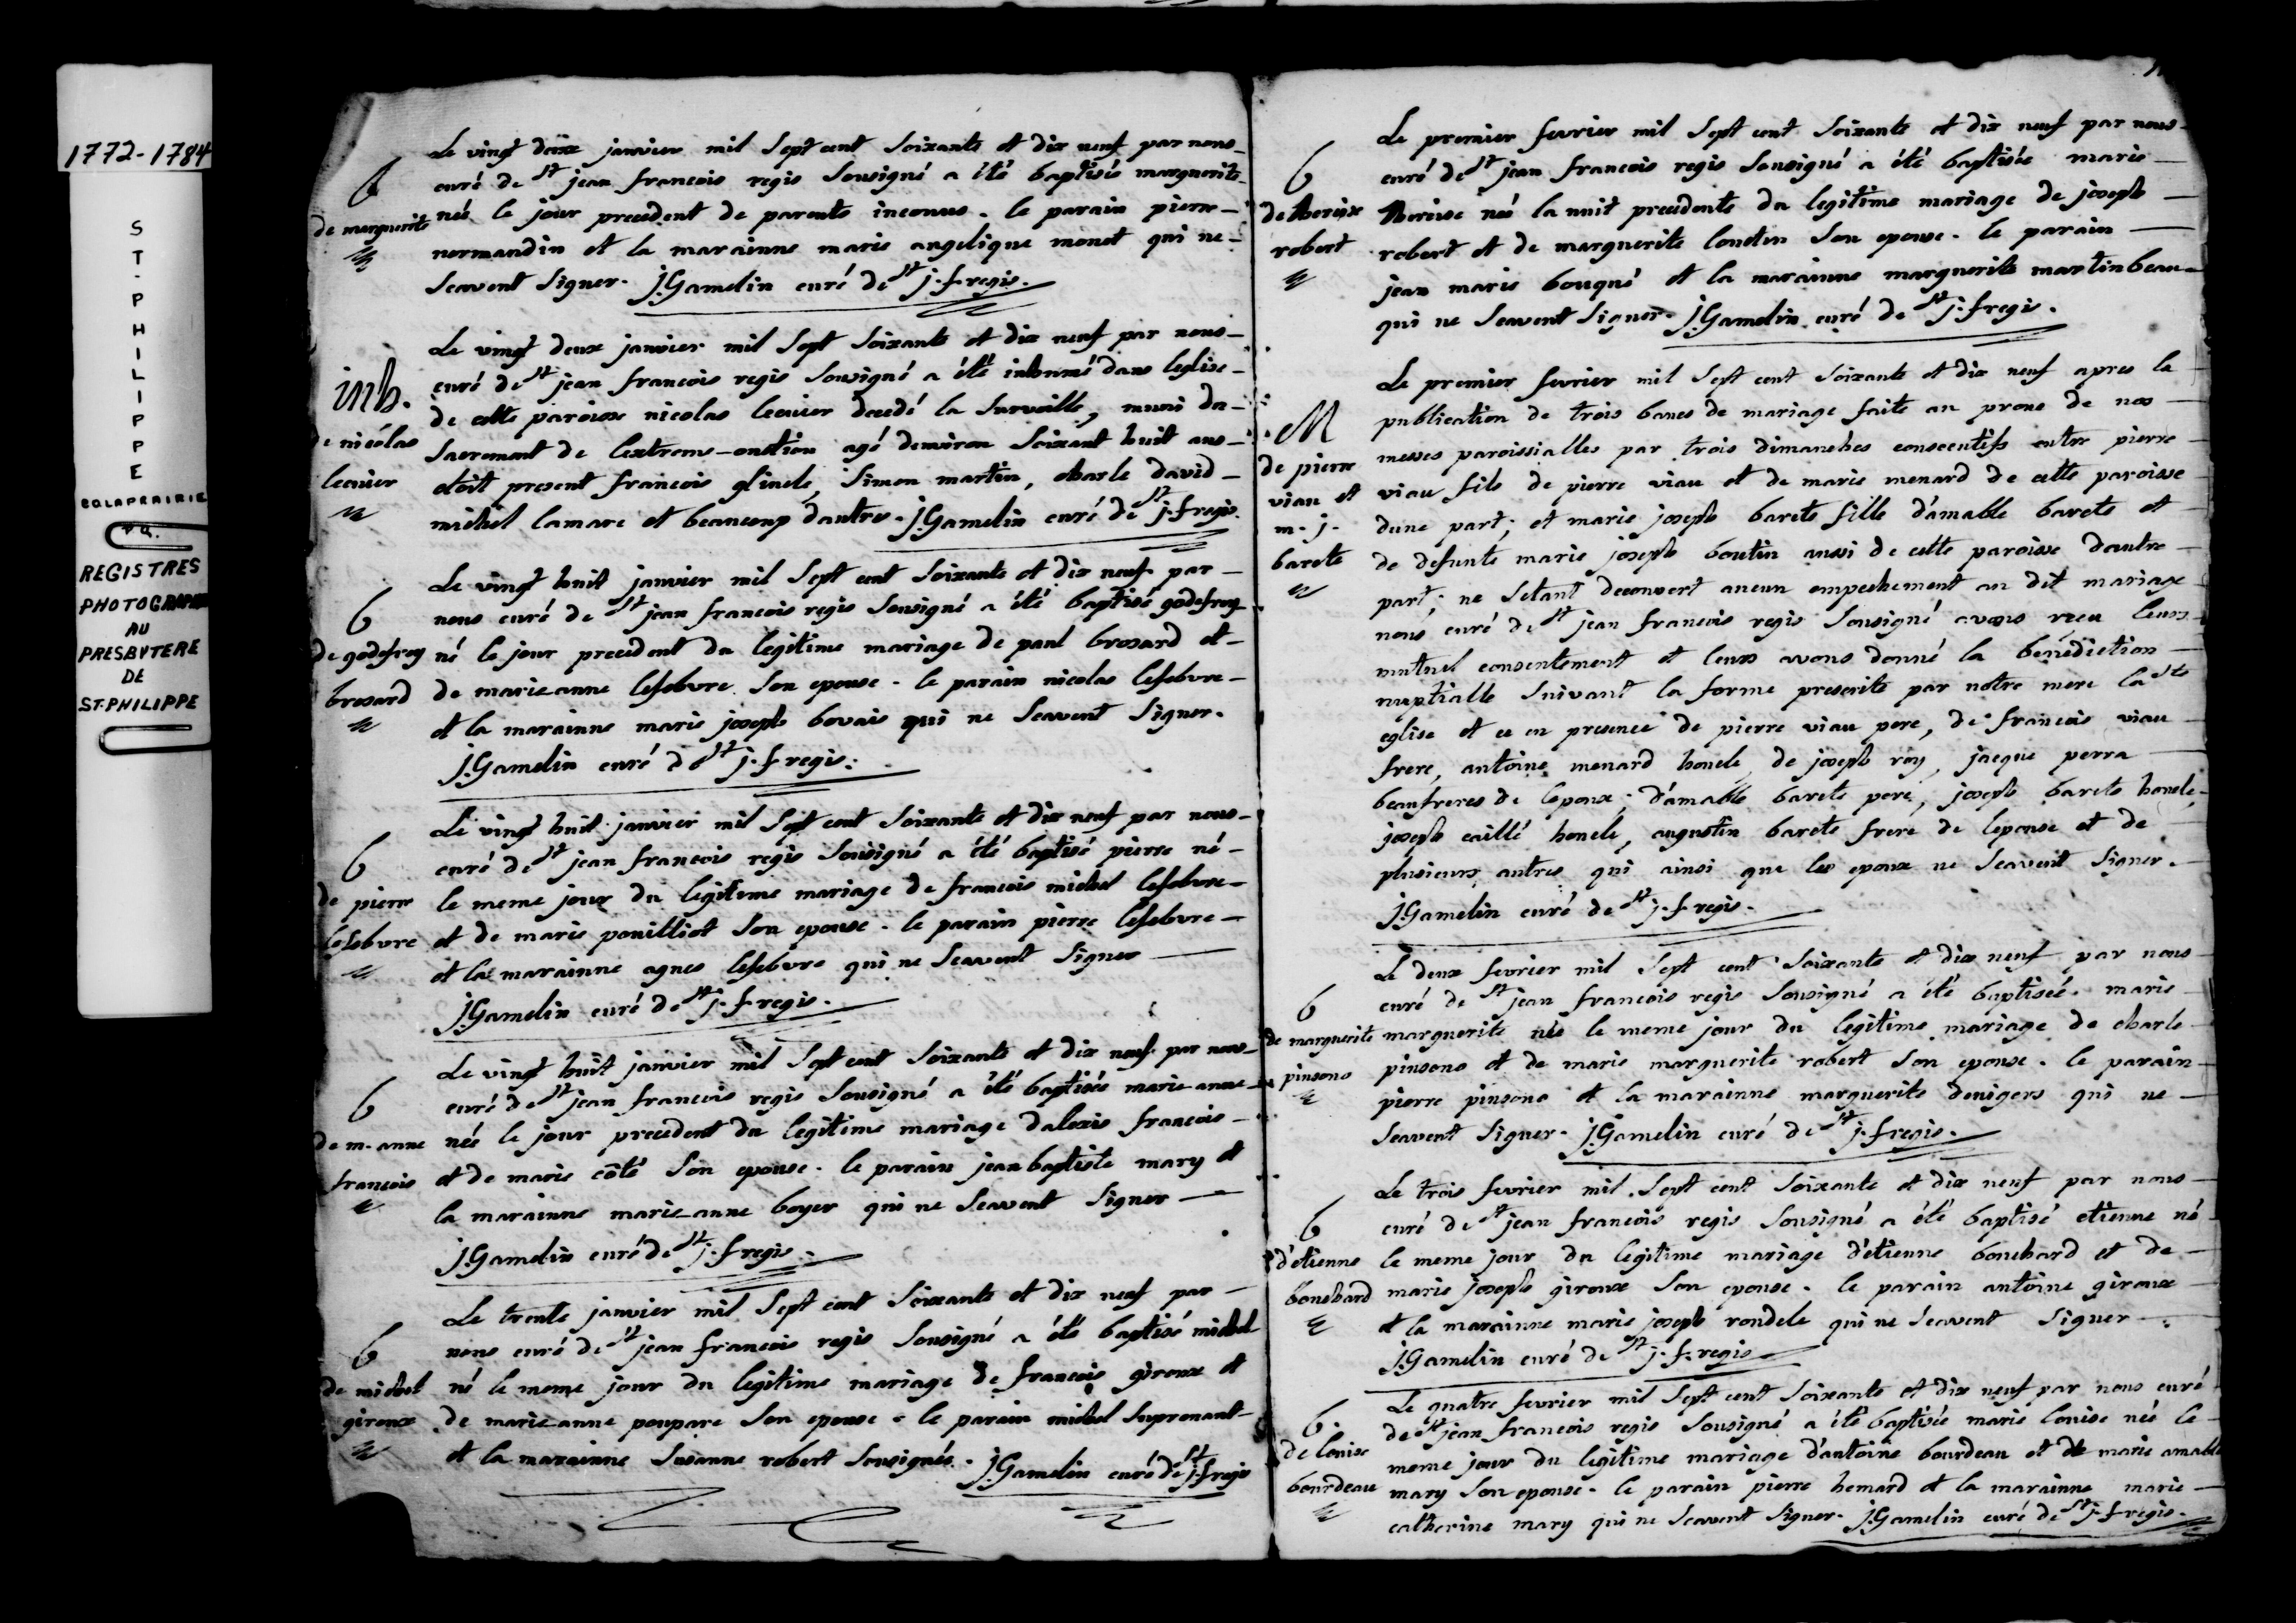 1772-1784
ST-PHILIPPE
CO. LAPRAIRIE
P.Q.
REGISTRES
PHOTOGRAPHIÉS
AU
PRESBYTERE
DE
ST-PHILIPPE
B
de marguerite
Le vingt deux janvier mil Sept cent Soixante et dix neuf par nous
curé de St jean francois regis Sousigné a été baptisée marguerite
née le jour precedent de parents inconnus. le parain pierre
normandin et la marainne marie angelique monet qui ne
Scavent Signer. J. Gamelin curé de St j. f regis.
inh.
de nicolas
lecuier
Le vingt deux janvier mil Sept Soixante et dix neuf par nous
curé de St jean francois regis Sousigné a été inhumé dans leglise
de cette paroisse nicolas lecuier decedé la Surveille, muni du
Sacrement de lextreme-onction agé denviron Soixant huit ans
etoit present francois glinele, Simon martin, charle david
michel lamarc et beaucoup dautres. J. Gamelin curé de St j. f regis.
b
de godefroy
brosard
Le vingt huit janvier mil Sept cent Soixante et dix neuf par
nous curé de St jean francois regis Sousigné a été baptisé godefroy
né le jour precedent du legitime mariage de paul brosard et
de marie anne lefebvre Son epouse. le parain nicolas lefebvre
et la marainne marie joseph bovais qui ne Scavent Signer.
J. Gamelin curé de St j. f regis.
b
de pierre
lefebvre
Le vingt huit janvier mil Sept cent Soixante et dix neuf par nous
curé de St jean francois regis Sousigné a été baptisé pierre né
le meme jour du legitime mariage de francois michel lefebvre
et de marie pouilliot Son epouse. le parain pierre lefebvre
et la marainne agnes lefebvre qui ne Scavent Signer
J. Gamelin curé de St j. f regis.
b
de m. anne
francois
Le vingt huit janvier mil Sept cent Soixante et dix neuf par nous
curé de St jean francois regis Sousigné a été baptisée marie anne
née le jour precedent du legitime mariage dalexis francois
et de marie côté Son epouse. le parain jean baptiste mary et
la marainne marie anne boyer qui ne Scavent Signer
J. Gamelin curé de St j. f regis.
b
de michel
giroux
Le trente janvier mil Sept cent Soixante et dix neuf par
nous curé de St jean francois regis Sousigné a été baptisé michel
né le meme jour du legitime mariage de francois giroux et
de marie anne poupare Son epouse. le parain michel Suprenant
et la marainne Susanne robert Sousignés. J. Gamelin curé de St j. f regis
b
de therese
robert
Le premier fevrier mil Sept cent Soixante et dix neuf par nous
curé de St jean francois regis Sousigné a été baptisée marie
therese née la nuit precedente du legitime mariage de joseph
robert et de marguerite lonctin Son epouse. le parain
jean marie bouqué et la marainne marguerite martinbeau
qui ne Scavent Signer. J. Gamelin curé de St j. f regis.
M
de pierre
viau et
m. j.
barete
Le premier fevrier mil Sept cent Soixante et dix neuf apres la
publication de trois bancs de mariage faite au prone de nos
messes paroissialles par trois dimanches consecutifs entre pierre
viau fils de pierre viau et de marie menard de cette paroisse
dune part; et marie joseph barete fille damable barete et
de defunte marie joseph boutin aussi de cette paroisse dautre
part; ne Setant decouvert aucun empechement au dit mariage
nous curé de St jean francois regis Sousigné avons receu leurs
mutuel consentement et leurs avons donné la benediction
nuptialle Suivant la forme prescrite par notre mere la Ste
eglise et ce en presence de pierre viau pere, de francois viau
frere, antoine menard honcle, de joseph roy, jacque perra
beaufreres de lepoux; damable barete pere, joseph barete honcle,
joseph caillé honcle, augustin barete freré de lepouse et de
plusieurs autres qui ainsi que les epoux ne Scavent Signer.
J. Gamelin curé de St j. f regis.
b
de marguerite
pinsono
Le deux fevrier mil Sept cent Soixante et dix neuf par nous
curé de St jean francois regis Sousigné a été baptisée marie
marguerite née le meme jour du legitime mariage de charle
pinsono et de marie marguerite robert Son epouse. le parain
pierre pinsono et la marainne marguerite denigers qui ne
Scavent Signer. J. Gamelin curé de St j. f regis.
b
d'etienne
bouchard
Le trois fevrier mil Sept cent Soixante et dix neuf par nous
curé de St jean francois regis Sousigné a été baptisé etienne né
le meme jour du legitime mariage d'etienne bouchard et de
marie joseph giroux Son epouse. le parain antoine giroux
et la marainne marie joseph rondele qui ne Scavent Signer
J. Gamelin curé de St j. f. regis
b.
de louise
bourdeau
Le quatre fevrier mil Sept cent Soixante et dix neuf par nous curé
de St jean francois regis Sousigné a été baptisée marie louise née le
meme jour du legitime mariage d'antoine bourdeau et de marie amable
mary Son epouse. le parain pierre hemard et la marainne marie
catherine mary qui ne Scavent Signer. J. Gamelin curé de St j. f regis.